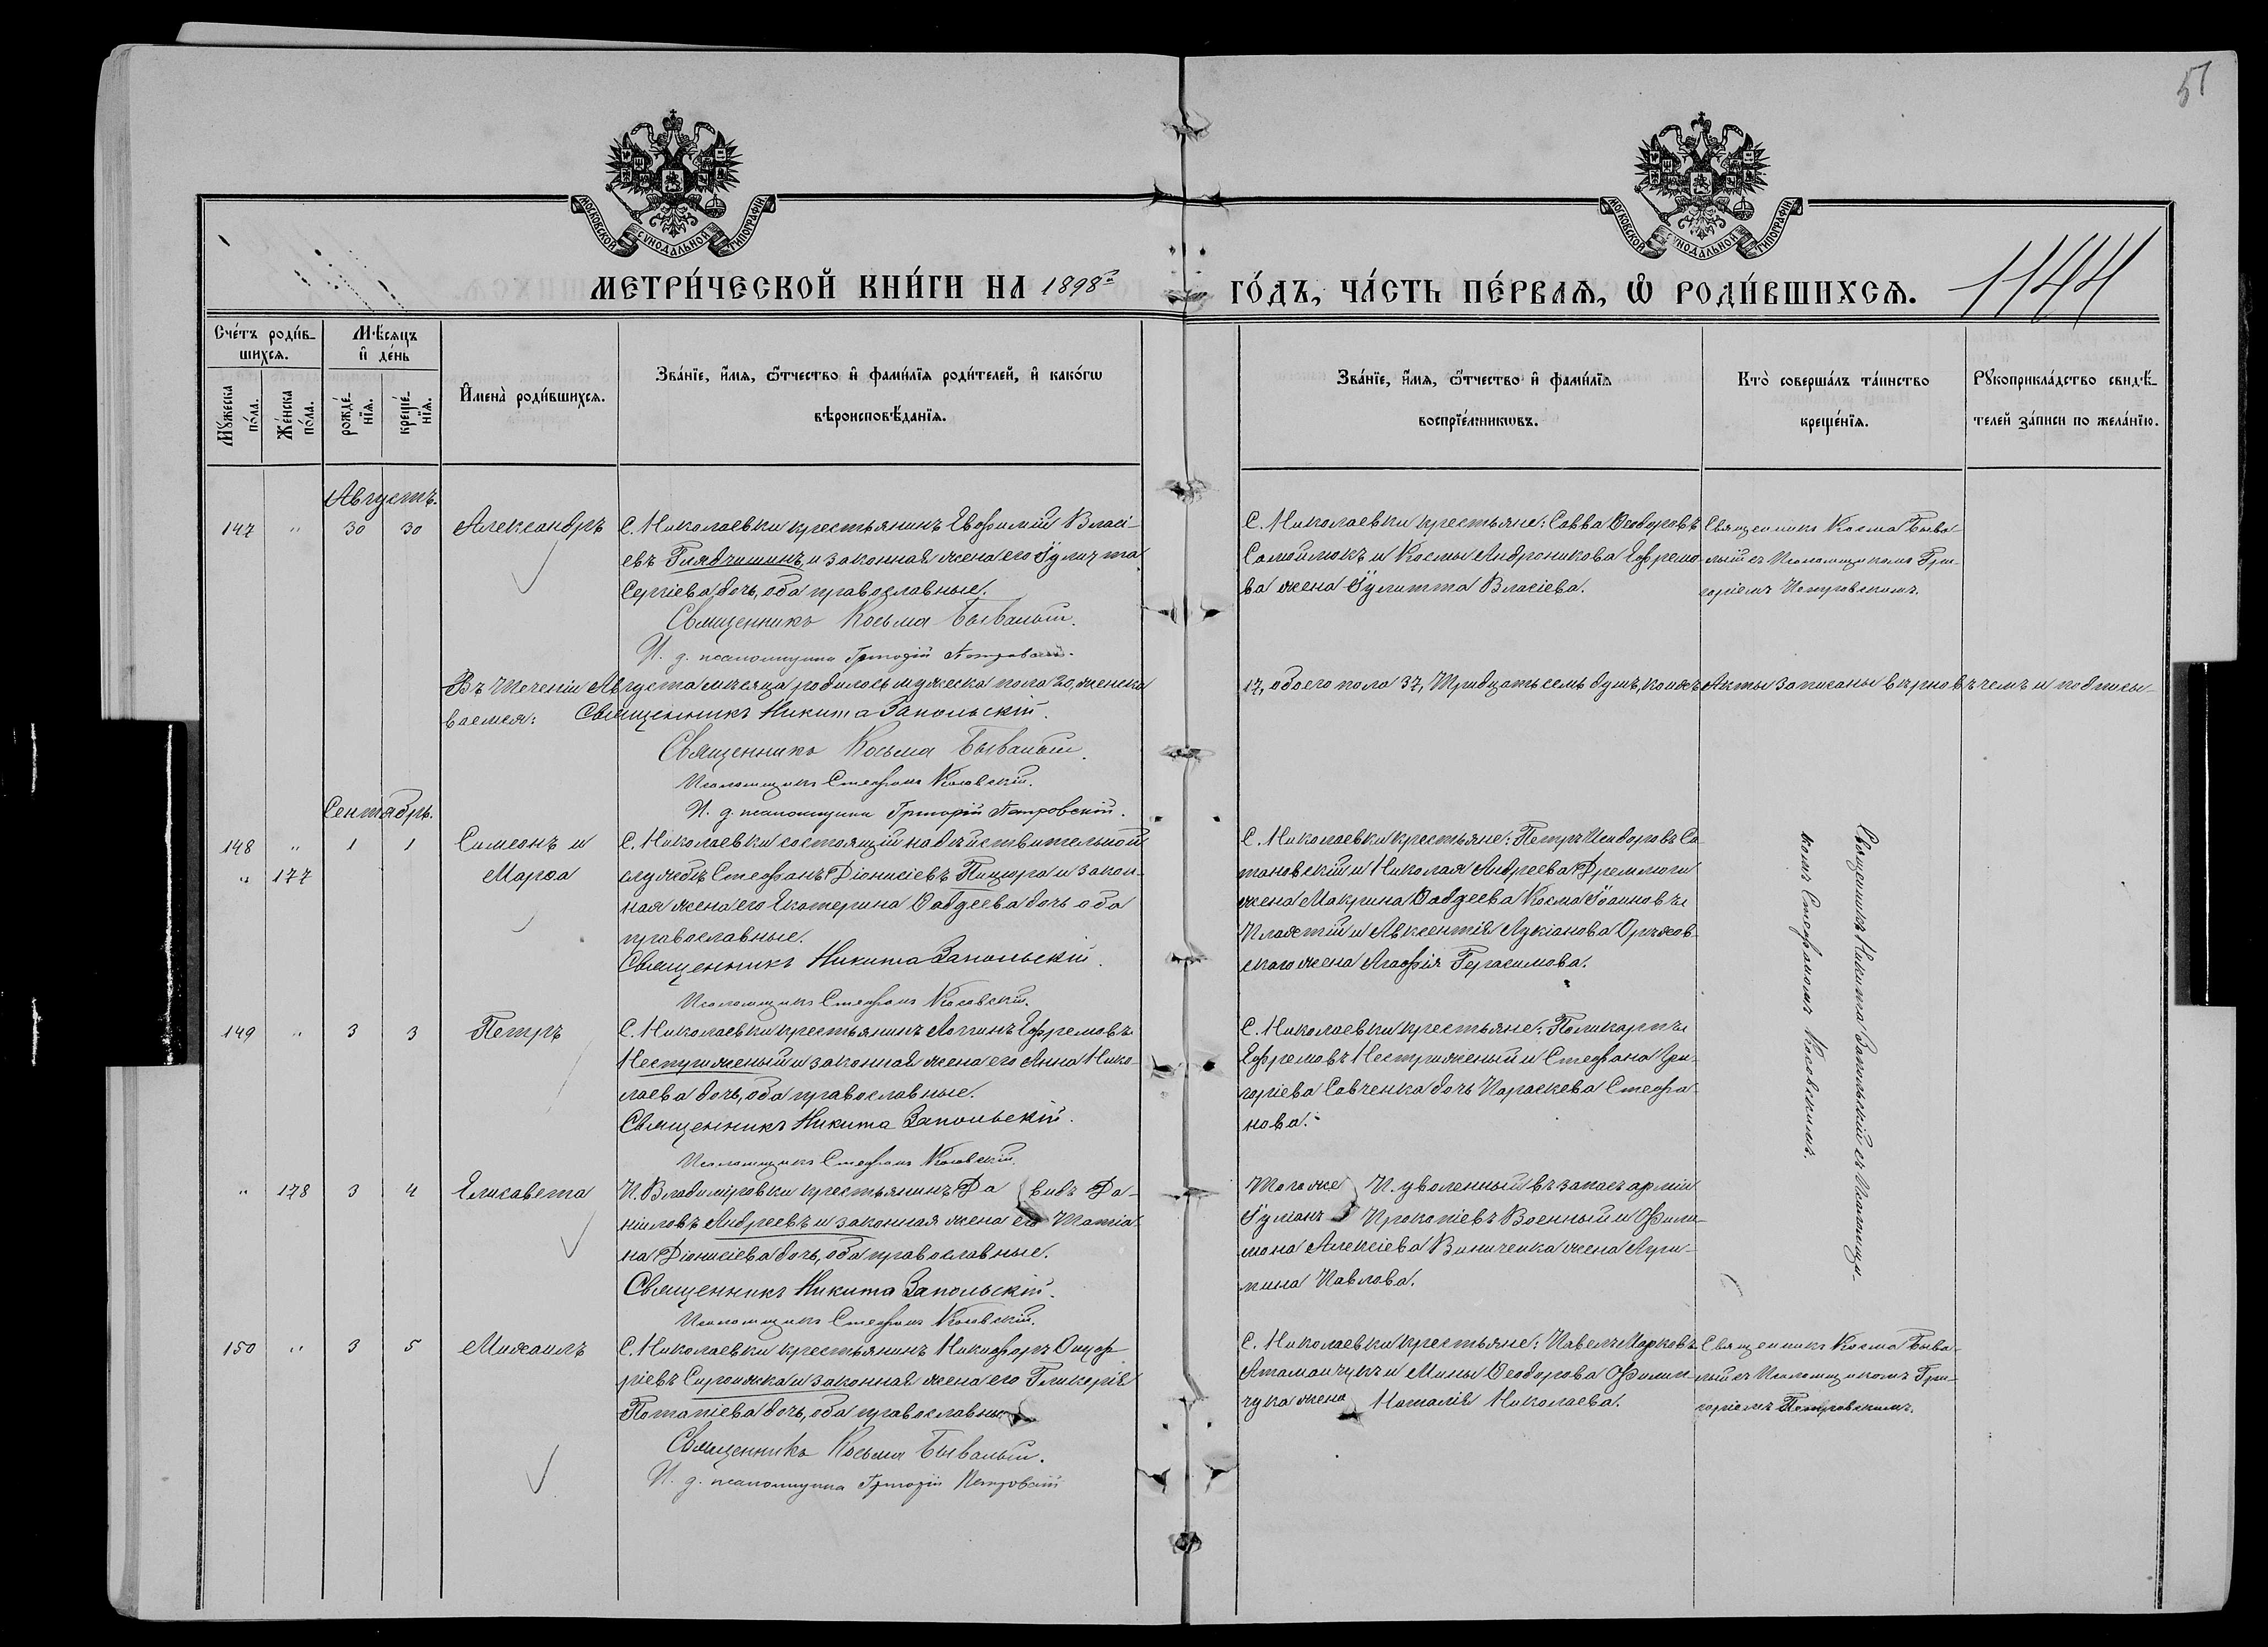 51
МОСКОВСКОЙ СѴНОДАЛЬНОЙ ТИПОГРАФІИ
МОСКОВСКОЙ СѴНОДАЛЬНОЙ ТИПОГРАФІИ
МЕТРИ́ЧЕСКОЙ КНИ́ГИ НА 1898й
ГО́ДЪ, ЧА́СТЬ ПЕ́РВАѦ, Ѡ РОДИ́ВШИХСѦ.
1144
Сче́тъ роди́в-
шихсѧ.
Мѣсѧцъ
и де́нь
Мꙋ́жеска по́ла.
Же́нска по́ла.
рожде́-
нїѧ.
креще́-
нїѧ.
И҆мена̀ роди́вшихсѧ.
Зва́нїе, и҆́мѧ, ѻ҆́тчество и҆ фами́лїѧ роди́телей, и҆ како́гѡ
вѣроисповѣ́данїѧ.
Зва́нїе, и҆́мѧ, ѻ҆́тчество и҆ фами́лїѧ
воспрїе́мникѡвъ.
Кто̀ соверша́лъ та́инство
креще́нїѧ.
Рꙋкоприкла́дство свидѣ́-
телей за́писи по жела́нїю.
Августъ.
147 " 30 30 Александръ
С. Николаевки крестьянинъ Евфимій Власі-
евъ Глядчишинъ и законная жена его Іулитта
Сергіева дочь, оба православные.
Священникъ Косьма Бывалый.
И. д. псаломщика Григорій Петровскій.
С. Николаевки крестьяне: Савва Ѳеодоровъ
Самойлюкъ и Космы Андроникова Ефремо-
ва жена Іулитта Власіева.
Священникъ Косма Быва-
лый съ Псаломщикомъ Гри-
горіемъ Петровскимъ.
Въ теченіи Августа мѣсяца родилось мужеска пола 20, женска
17, обоего пола 37, тридцать семь душъ, коихъ акты записаны вѣрно въ чемъ и подписы-
ваемся: Священникъ Никита Запольскій.
Священникъ Косьма Бывалый.
Псаломщикъ Стефанъ Косовскій.
И. д. псаломщика Григорій Петровскій.
Сентябрь.
148 " 1 1 Симеонъ и
" 177 Марѳа
С. Николаевки состоящій на дѣйствительной
службѣ Стефанъ Діонисіевъ Пицюра и закон-
ная жена его Екатерина Ѳаддеева дочь оба
православные.
Священникъ Никита Запольскій.
Псаломщикъ Стефанъ Косовскій.
С. Николаевки крестьяне: Петръ Исидоровъ Са-
тановскій и Николая Андреева Дремлюги
жена Макрина Ѳаддеева Косма Іоанновъ
и Авксентія Лукіанова
скаго жена Агафія Герасимова.
Священникъ Никита Запольскій съ Псаломщи-
комъ Стефаномъ Косовскимъ.
149 " 3 3 Петръ
С. Николаевки крестьянинъ Логгинъ Ефремовъ
Нестриженый и законная жена его Анна Нико-
лаева дочь, оба православные.
Священникъ Никита Запольскій.
Псаломщикъ Стефанъ Косовскій.
С. Николаевки крестьяне: Поликарпъ
Ефремовъ Нестриженый и Стефана Гри-
горіева Савченка дочь Параскева Стефа-
нова.
" 178 3 4 Елисавета
П. Владиміровки крестьянинъ Давидъ Да-
ніиловъ Андреевъ и законная жена его Татіа-
на Діонисіева дочь, оба православные.
Священникъ Никита Запольскій.
Псаломщикъ Стефанъ Косовскій.
Того же П. уволенный въ запасъ арміи
Прокопіевъ Военный и Фили-
мона Алексіева Виниченка жена Агри-
пина Павлова.
150 " 3 5 Михаилъ
С. Николаевки крестьянинъ Никифоръ Онуф-
ріевъ Сироижка и законная жена его Гликерія
Потапіева дочь, оба православные
Священникъ Косьма Бывалый.
И. д. псаломщика Григорій Петровскій
С. Николаевки крестьяне: Павелъ Марковъ
Атаманчукъ и Мины Ѳеодорова Филип-
чука жена Наталія Николаева.
Священникъ Косма Быва-
лый съ Псаломщикомъ Гри-
горіемъ Петровскимъ.